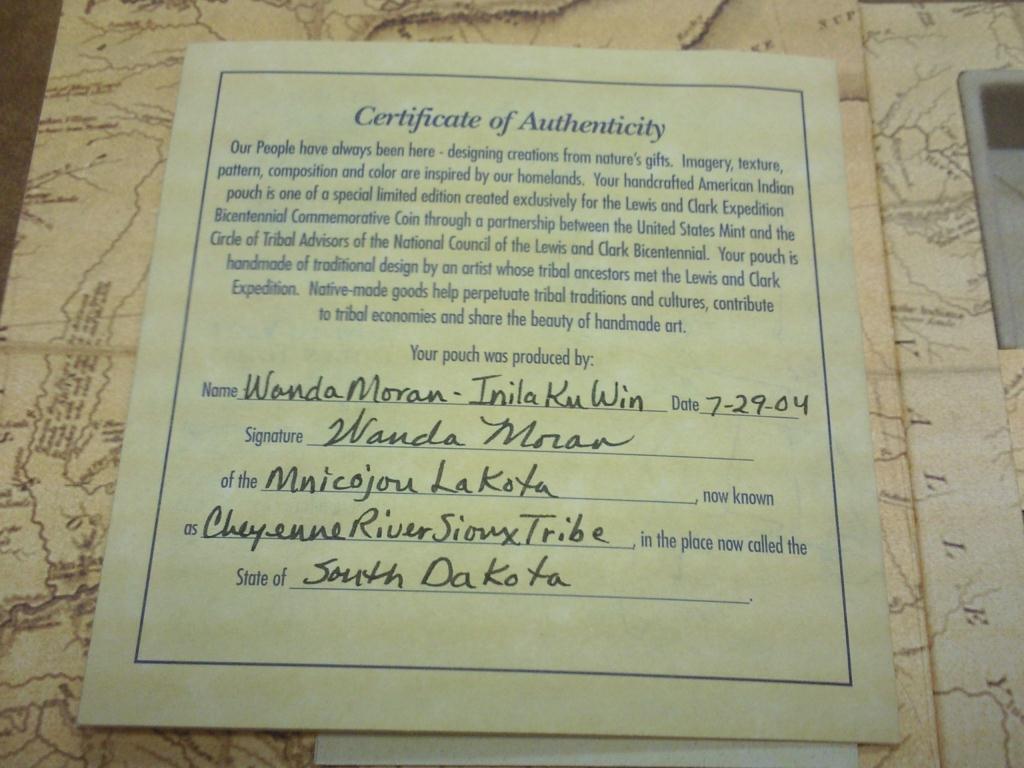 Certificate of Authenticity
Our People have always been here - designing creations from nature's gifts. Imagery, texture,
pattern, composition and color are inspired by our homelands. Your handcrafted American Indian
pouch is one of a special limited edition created exclusively for the Lewis and Clark Expedition
Bicentennial Commemorative Coin through a partnership between the United States Mint and the
Circle of Tribal Advisors of the National Council of the Lewis and Clark Bicentennial. Your pouch is
handmade of traditional design by an artist whose tribal ancestors met the Lewis and Clark
Expedition. Native-made goods help perpetuate tribal traditions and cultures, contribute
to tribal economies and share the beauty of handmade art.
Your pouch was produced by:
Name Wanda Moran - Inila Ku Win Date 7-29-04
Signature Wanda Moran
of the Mnicojou Lakota, now known
as Cheyenne River Sioux Tribe, in the place now called the
State of South Dakota.